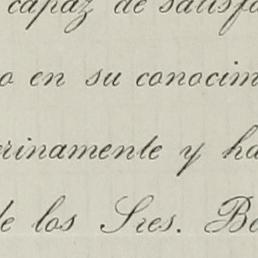 capaz de satisfa
o en su conocim
erinamente y ha
de los Sres. Be